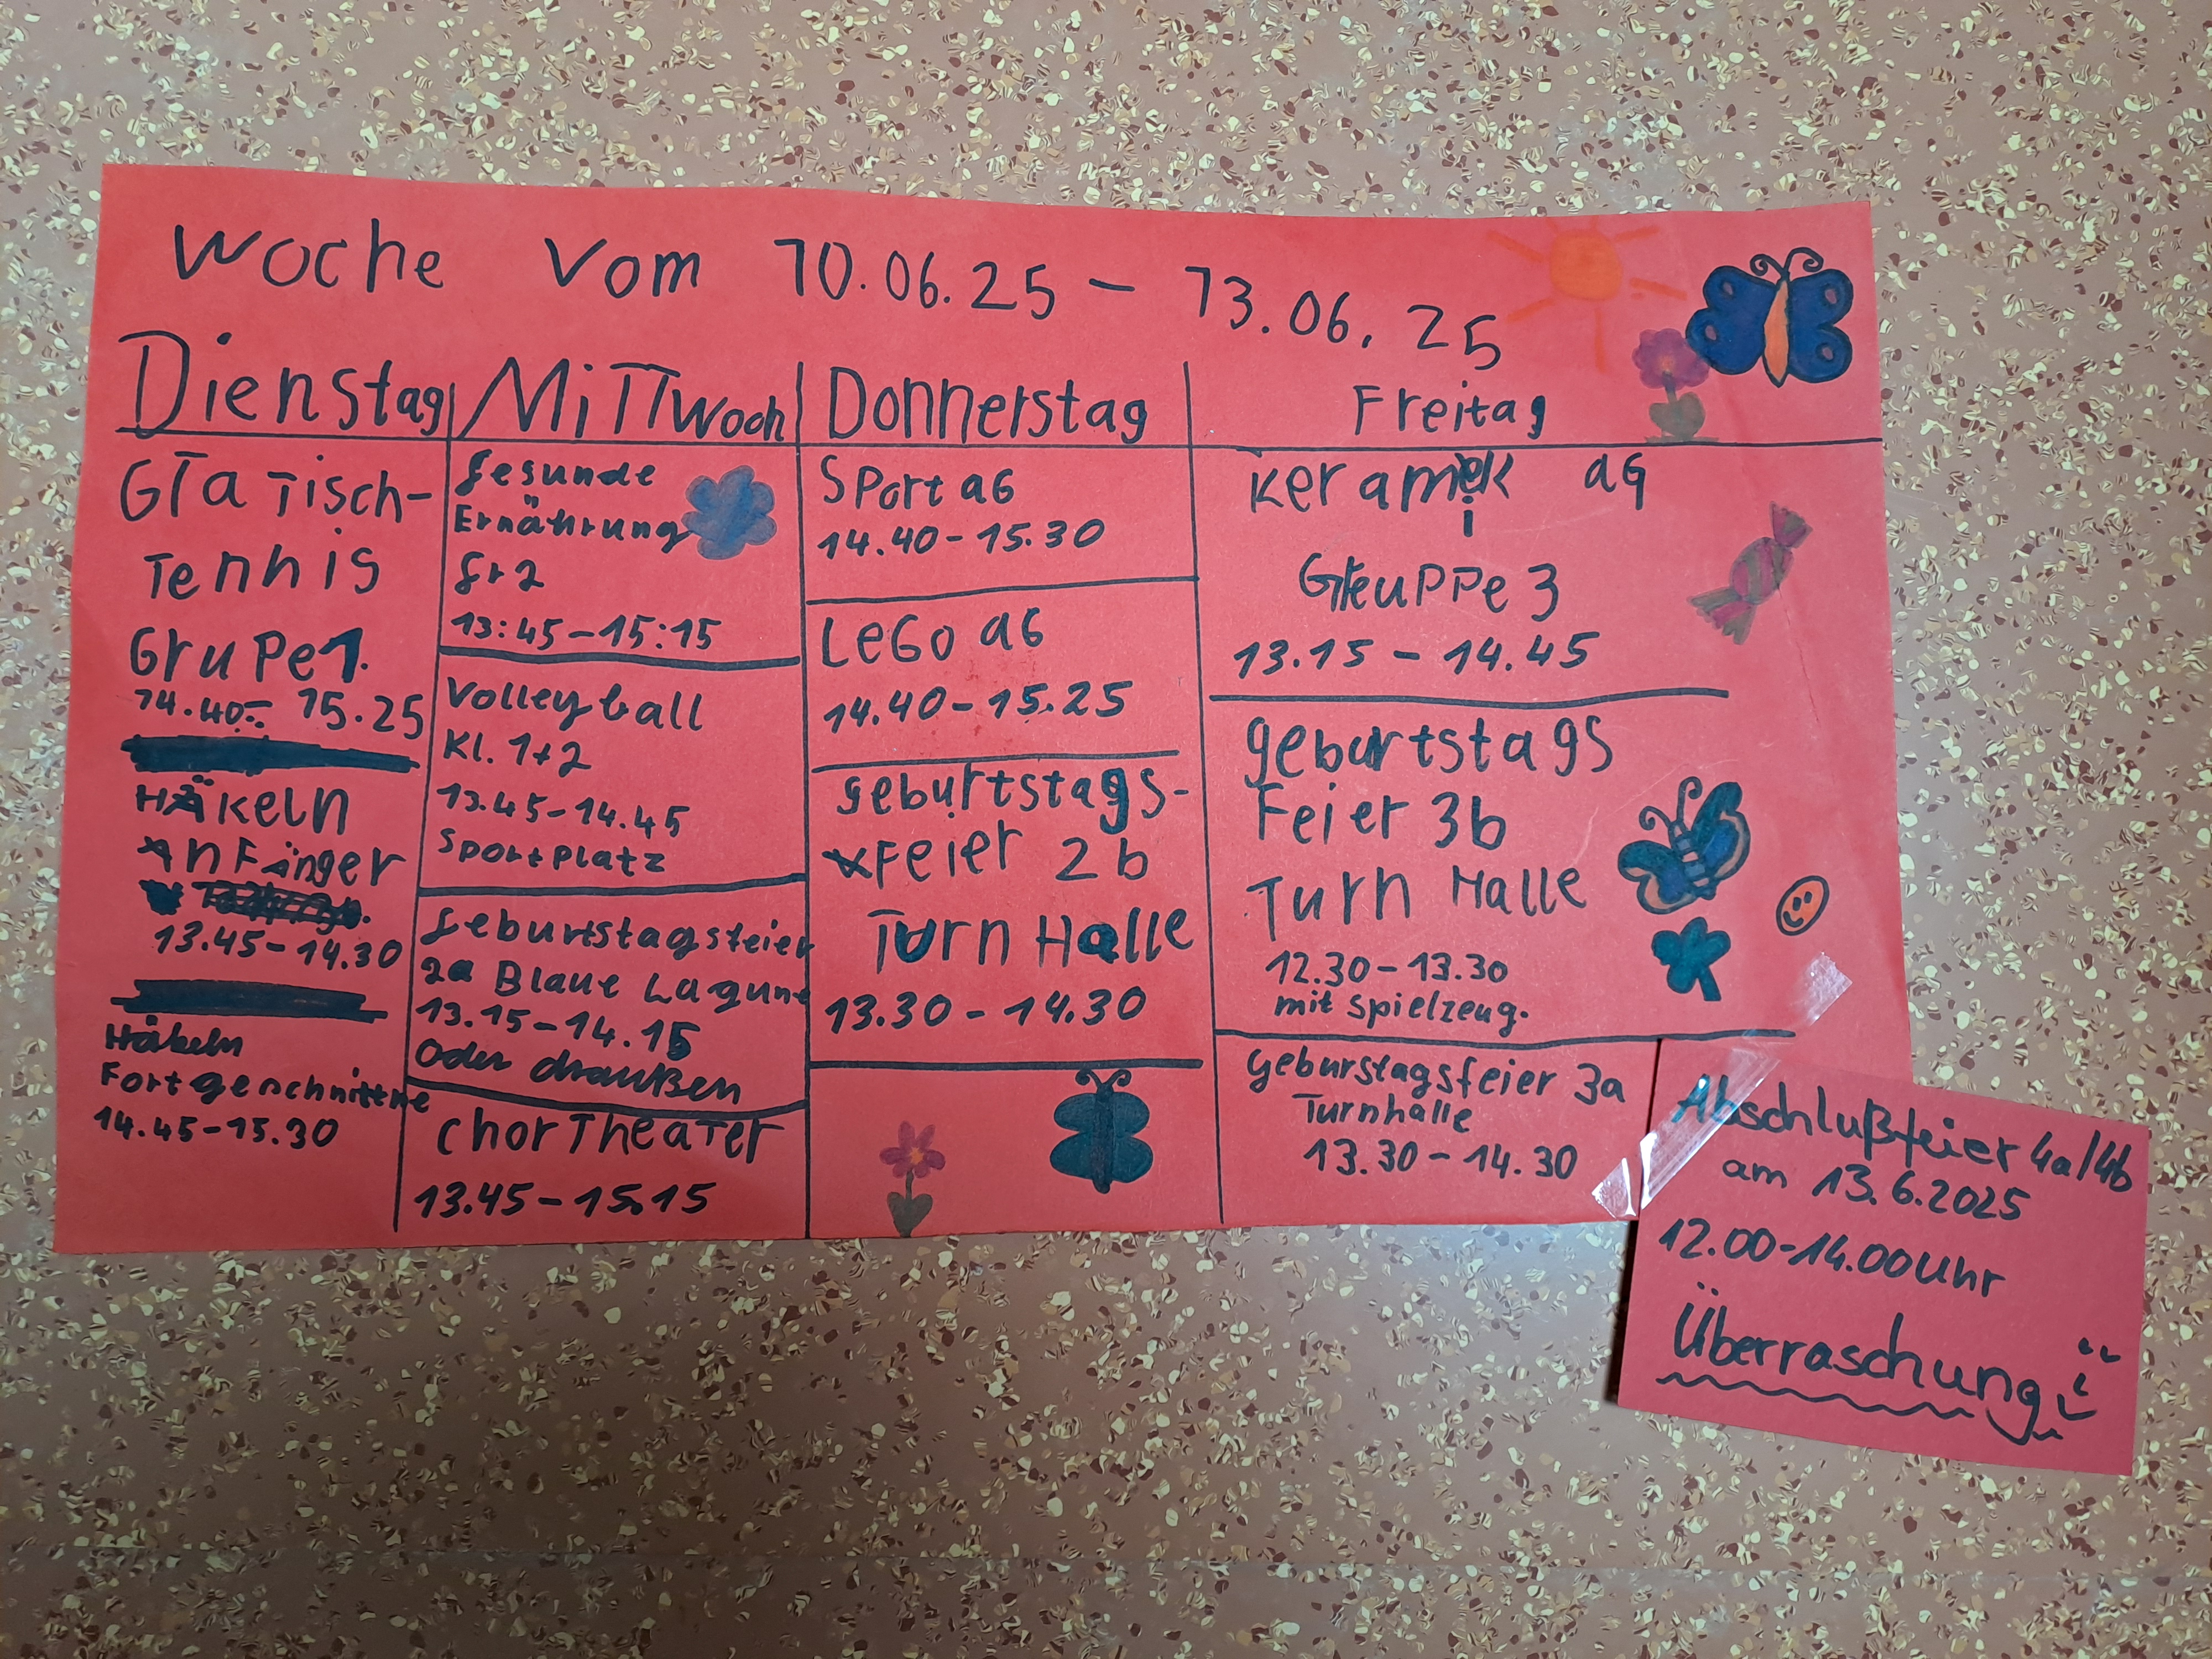 Woche vom 10.06.25 – 13.06.25
Dienstag
GTa Tisch-
Tennis
Grupe 1.
14.40- 15.25
HÄKeln
AnFänger
13.45-14.30
Häkeln
Fortgeschnittne
14.45-15.30
MiTTwoch
Gesunde
Ernährung
Gr 2
13:45-15:15
Volleyball
Kl. 1+2
13.45-14.45
Sportplatz
Geburtstagsfeier
2a Blaue Lagune
13.15-14.15
Oder draußen
ChorTheaTer
13.45-15.15
Donnerstag
SPort aG
14.40-15.30
LeGo aG
14.40-15.25
geburtstags-
Feier 2b
Turn Halle
13.30-14.30
Freitag
Keramik aG
GruPPe 3
13.15-14.45
geburtstags
Feier 3b
Turn Halle
12.30-13.30
mit Spielzeug.
Geburstagsfeier 3a
Turnhalle
13.30-14.30
Abschlußfeier 4a/4b
am 13.6.2025
12.00-14.00Uhr
Überraschung